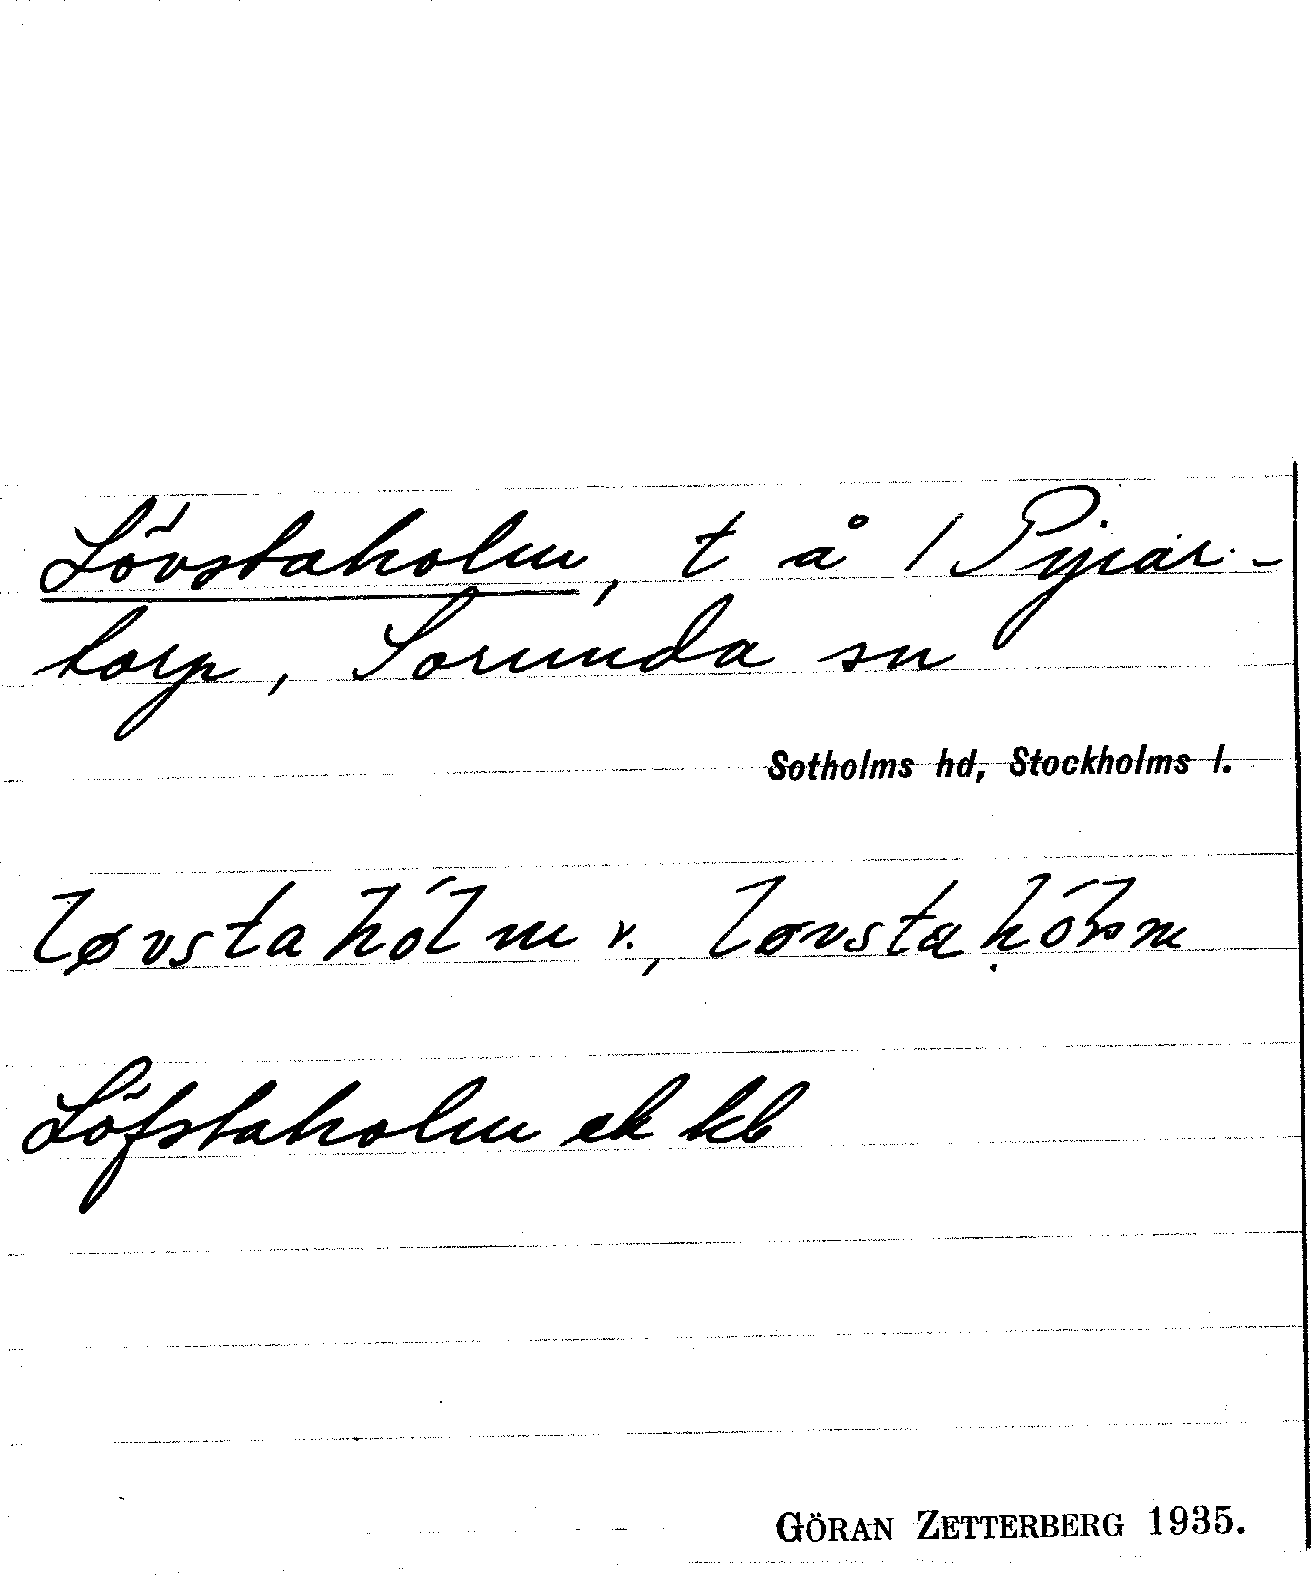 Lövstaholm, t å 1 Pijnar-
torp, Sorunda sn
Sotholms hd, Stockholms l.
løvstahól m v., løvstahólm
Löfstaholm ek kb
GÖRAN ZETTERBERG 1935.